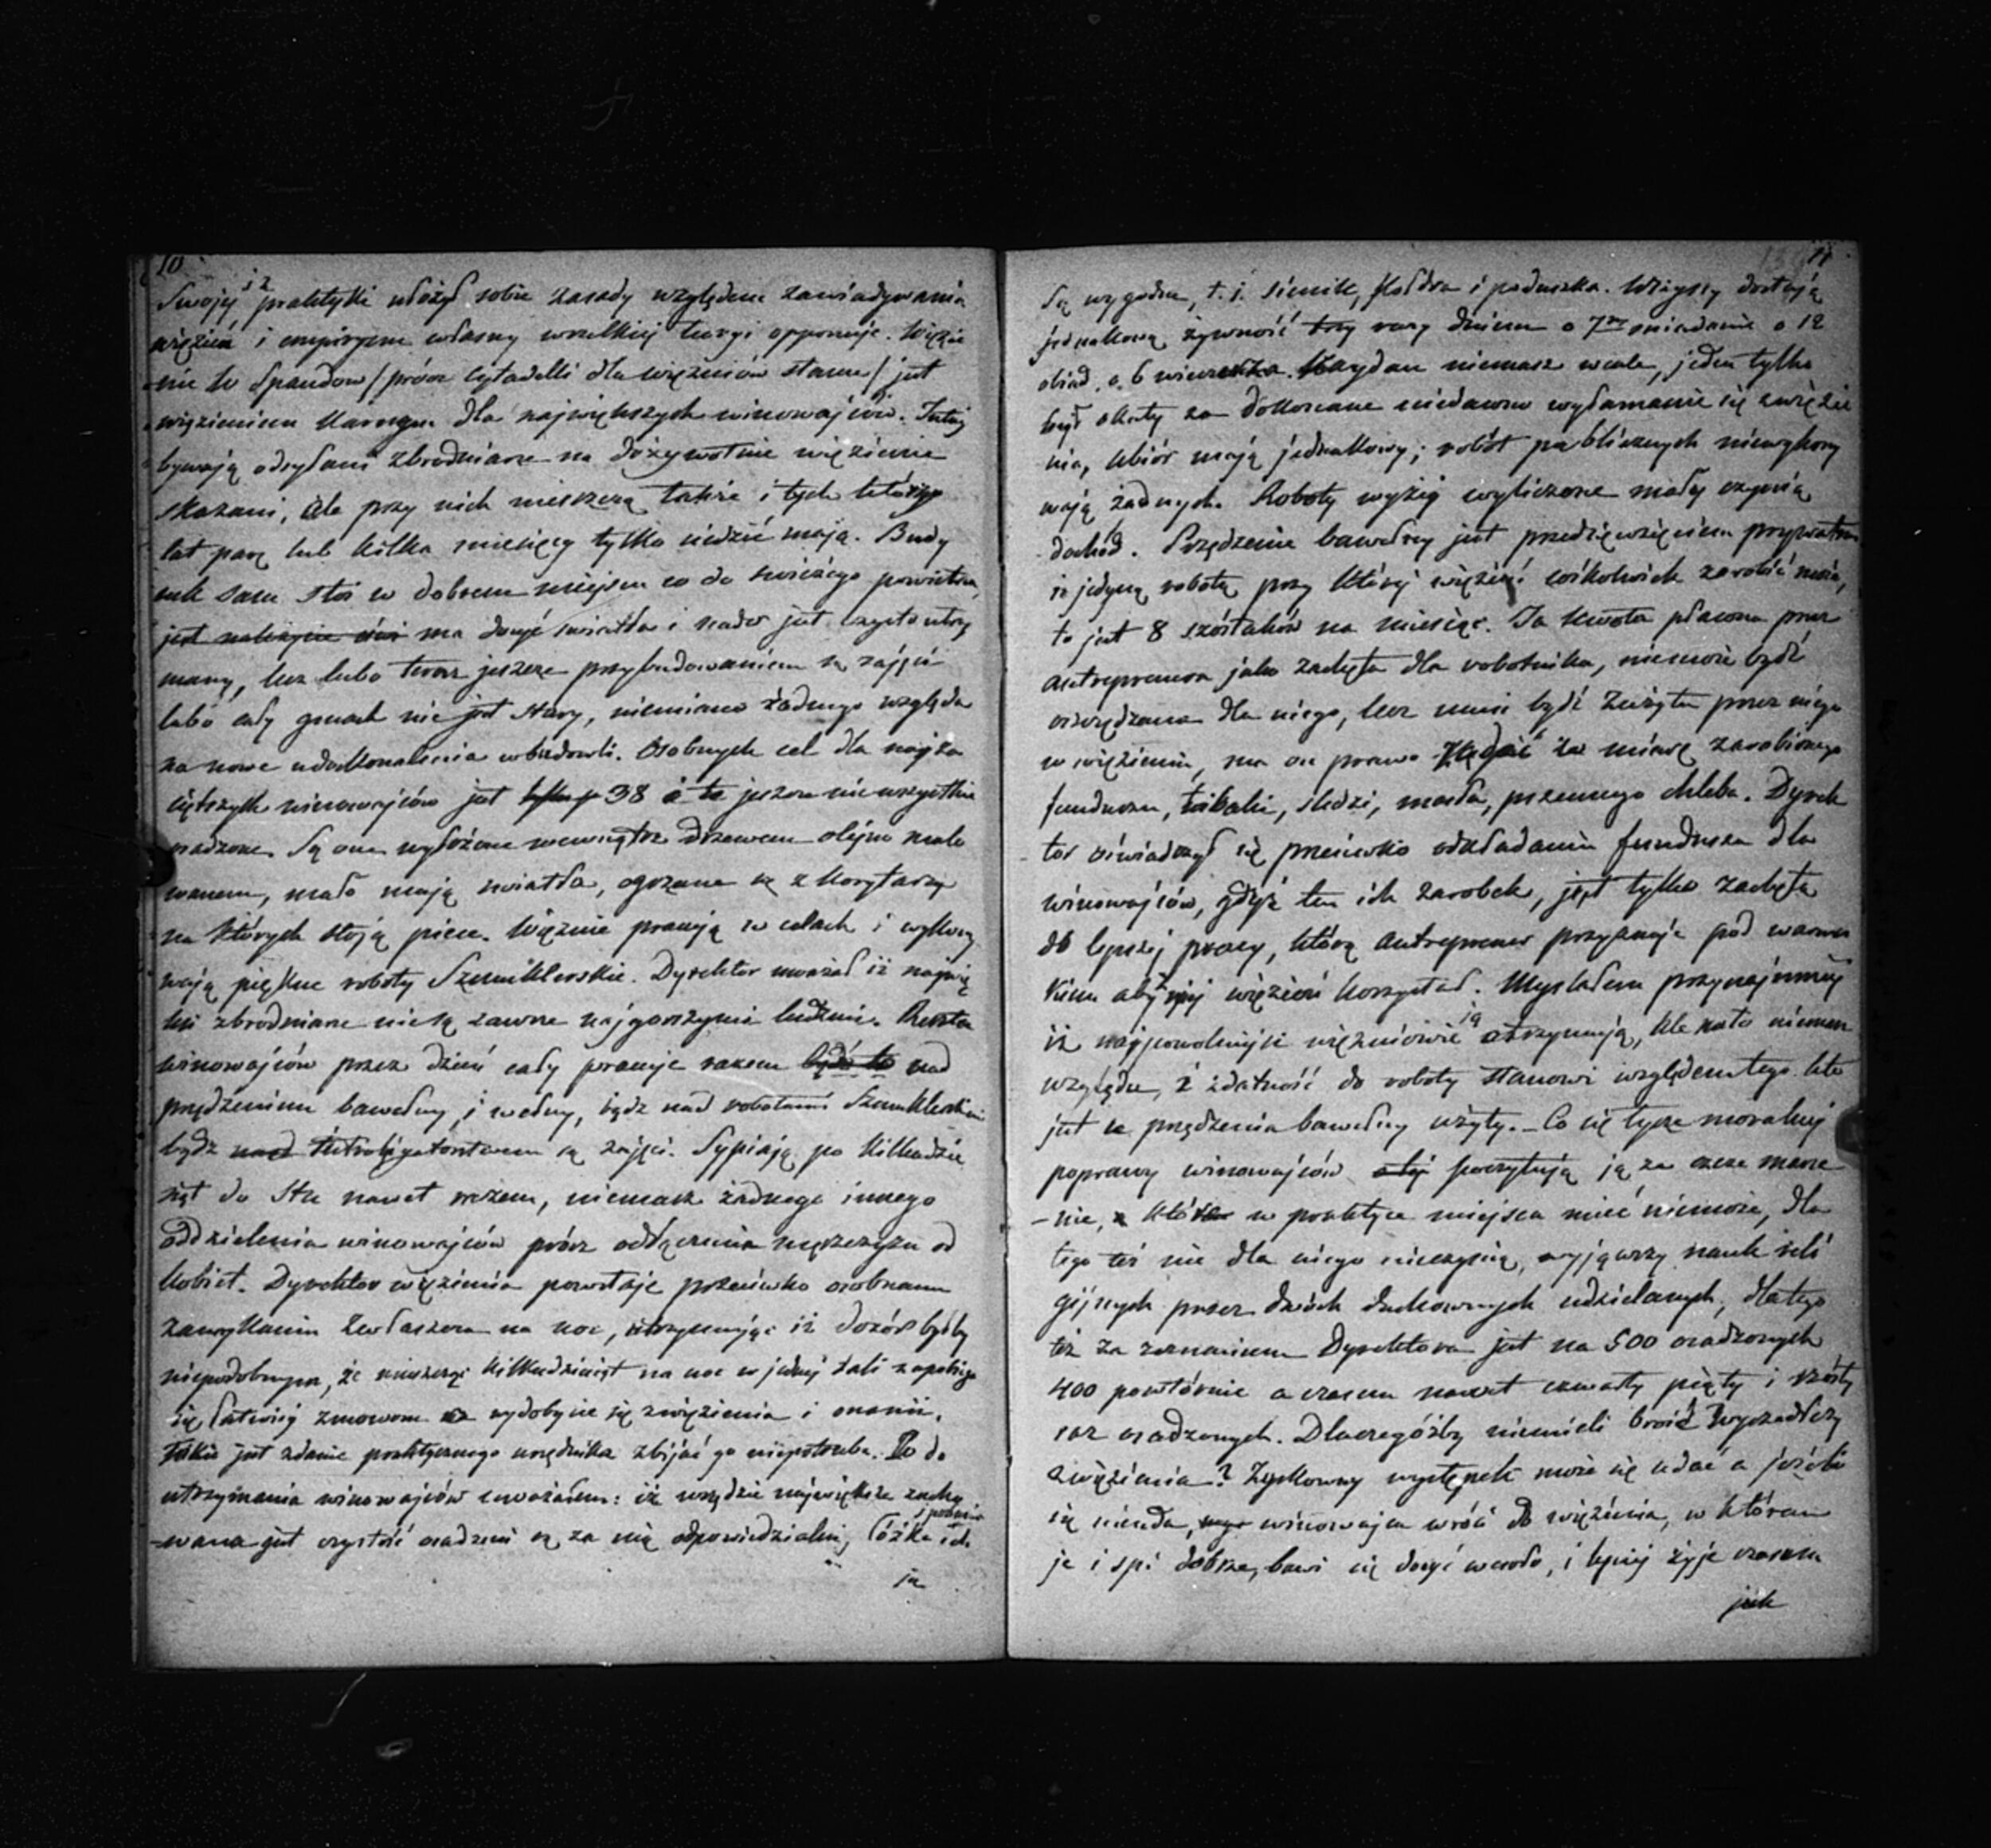 10
Swojej z praktyki ułożył sobie zasady względem zawiadywania
więzień i empiryzm własny wszelkiej teoryi opponuje. Więzie
nie to Spandow / prócz Cytadelli dla więźniów stanu / jest
więzieniem karnym dla największych winowajców. Tutaj
bywają odsyłani zbrodniarze na dożywotnie więzienie
skazani, ale przy nich mieszczą także i tych którzy
lat parę lub kilka miesięcy tylko siedzieć mają. Budy
nek sam stoi w dobrem miejscu co do świeżego powietrza,
jest należycie ma dosyć światła i nader jest czysto utrzy
many, lecz lubo teraz jeszcze przybudowaniem są zajęci
lubo cały gmach nie jest stary, niemiano żadnego względu
na nowe udoskonalenia w budowli. Osobnych cel dla najza
ciętszych winowajców jest 38 i te jeszcze nie wszystkie
osadzone. Są one wyłożone wewnątrz drzewem olejno malo
wanem, mało mają światła, ogrzane są z korytarzy
na których stoją piece. Więźnie pracują w celach i wykony
wają piękne roboty Szmuklerskie. Dyrektor uważał iż najwię
ksi zbrodniarze nie są zawsze najgorszymi ludźmi. Reszta
winowajców przez dzień cały pracuje razem bądź to nad
przędzeniem bawełny i wełny, bądz nad robotami Szmuklerskiemi
bądz nad introligatorstwem są zajęci. Sypiają po kilkadzie
siąt do stu nawet razem, niemasz żadnego innego
oddzielenia winowajców prócz odłączenia mężczyzn od
kobiet. Dyrektor więzienia powstaje przeciwko osobnemu
zamykaniu zwłaszcza na noc, utrzymując iż dozór byłby
niepodobnym, że mieszcząc kilkudziesiąt na noc w jednej sali zapobiega
się łatwiej zmowom wydobycie się z więzienia i onanii.
Takie jest zdanie praktycznego urzędnika zbijać go niepotrzeba. Co do
utrzymania winowajców uważałem: iż wszędzie największa zacho
wana jest czystość osadzeni są za nią odpowiedzialni, łóżka ich
ja
11
Są wygodne, t. j. siennik, kołdra i poduszka. Wszyscy dostają
jednakową żywność trzy razy dziennie o 7mej śniadanie o 12
obiad, o 6 wieczerza. Kaydan niemasz wcale, jeden tylko
był okuty za dokonane niedawno wyłamanie się z więzie
nia, ubiór mają jednakowy; robót publicznych niewykony
wają żadnych. Roboty wyżej wyliczone mały czynią
dochód. Przędzenie bawełny jest przedsięwzięciem prywatnem
i jedyną robotą przy której więzień cośkolwiek zarobić może,
to jest 8 szóstaków na miesiąc. Ta kwota płacona przez
antreprenera jako zachęta dla robotnika, niemoże bydź
oszczędzana dla niego, lecz musi bydź zużyta przez niego
w więzieniu, ma on prawo żądać za miarę zarobionego
funduszu, tabaki, śledzi, masła, pszennego chleba. Dyrek
tor oświadczył się przeciwko odkładaniu funduszu dla
winowajców, gdyż ten ich zarobek, jest tylko zachętą
do lepszej pracy, którą antreprener przyznaje pod warun
kiem aby z niej więzień korzystał. Myślałem przynajmniej
iż najpowolniejsi więźniowie ją otrzymują, ale na to niemasz
względu, i zdatność do roboty stanowi względem tego kto
jest do przędzenia bawełny użyty. – Co się tycze moralnej
poprawy winowajców poczytują ją za czcze marze
nie, które w praktyce miejsca mieć niemoże, dla
tego też nic dla niego nieczynią, wyjąwszy nauk reli
gijnych przez dwóch duchownych udzielanych, dlatego
też za zeznaniem Dyrektora jest na 500 osadzonych
400 powtórnie a czasem nawet czwarty piąty i szósty
raz osadzonych. Dlaczegóżby niemieli broić wyszedłszy
z więzienia? Zyskowny występek może się udać a jeżeli
się nieuda, winowajca wróci do więzienia, w którem
je i śpi dobrze, bawi się dosyć wesoło, i lepiej żyje czasem
jak